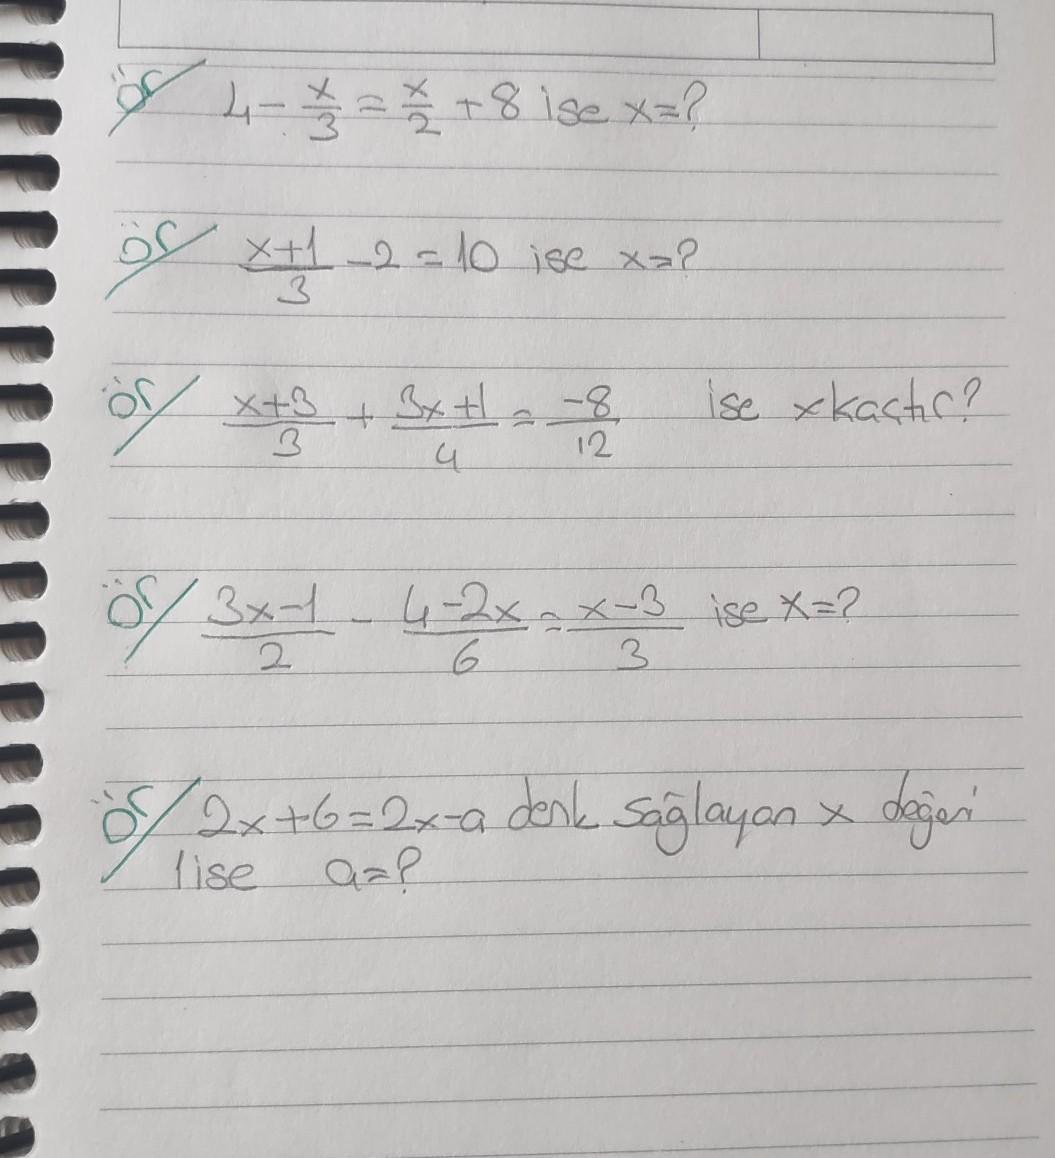 ör/ 4 - x/3 = x/2 + 8 ise x=?
ör/ (x+1)/3 - 2 = 10 ise x=?
ör/ (x+3)/3 + (3x+1)/4 = -8/12 ise x kaçtır?
ör/ (3x-1)/2 - (4-2x)/6 = (x-3)/3 ise x=?
ör/ 2x+6=2x-a denk sağlayan x değeri
1 ise a=?